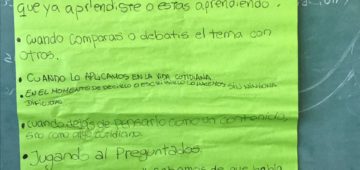 que ya aprendiste o estas aprendiendo.
• Cuando comparas o debatis el tema con
otros.
• CUANDO LO APLICAMOS EN LA VIDA COTIDIANA
• EN EL MOMENTO DE DECIRLO O ESCRIBIRLO LO HACEMOS SIN NINGUNA
DIFICULTAD
• cuando dejas de pensarlo como un contenido,
sino como algo cotidiano.
• Jugando al Preguntados.